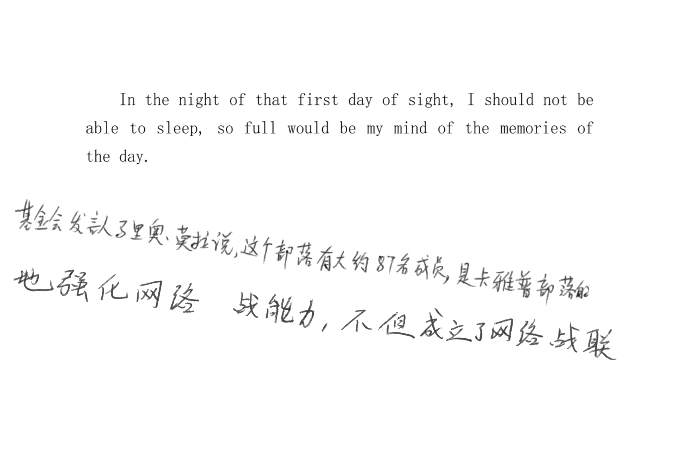 In the night of that first day of sight, I should not be
able to sleep, so full would be my mind of the memories of
the day.
基金会发言人马里奥·莫拉说,这个部落有大约87名成员,是卡雅普部落的
地强化网络 战能力,不但成立了网络战联